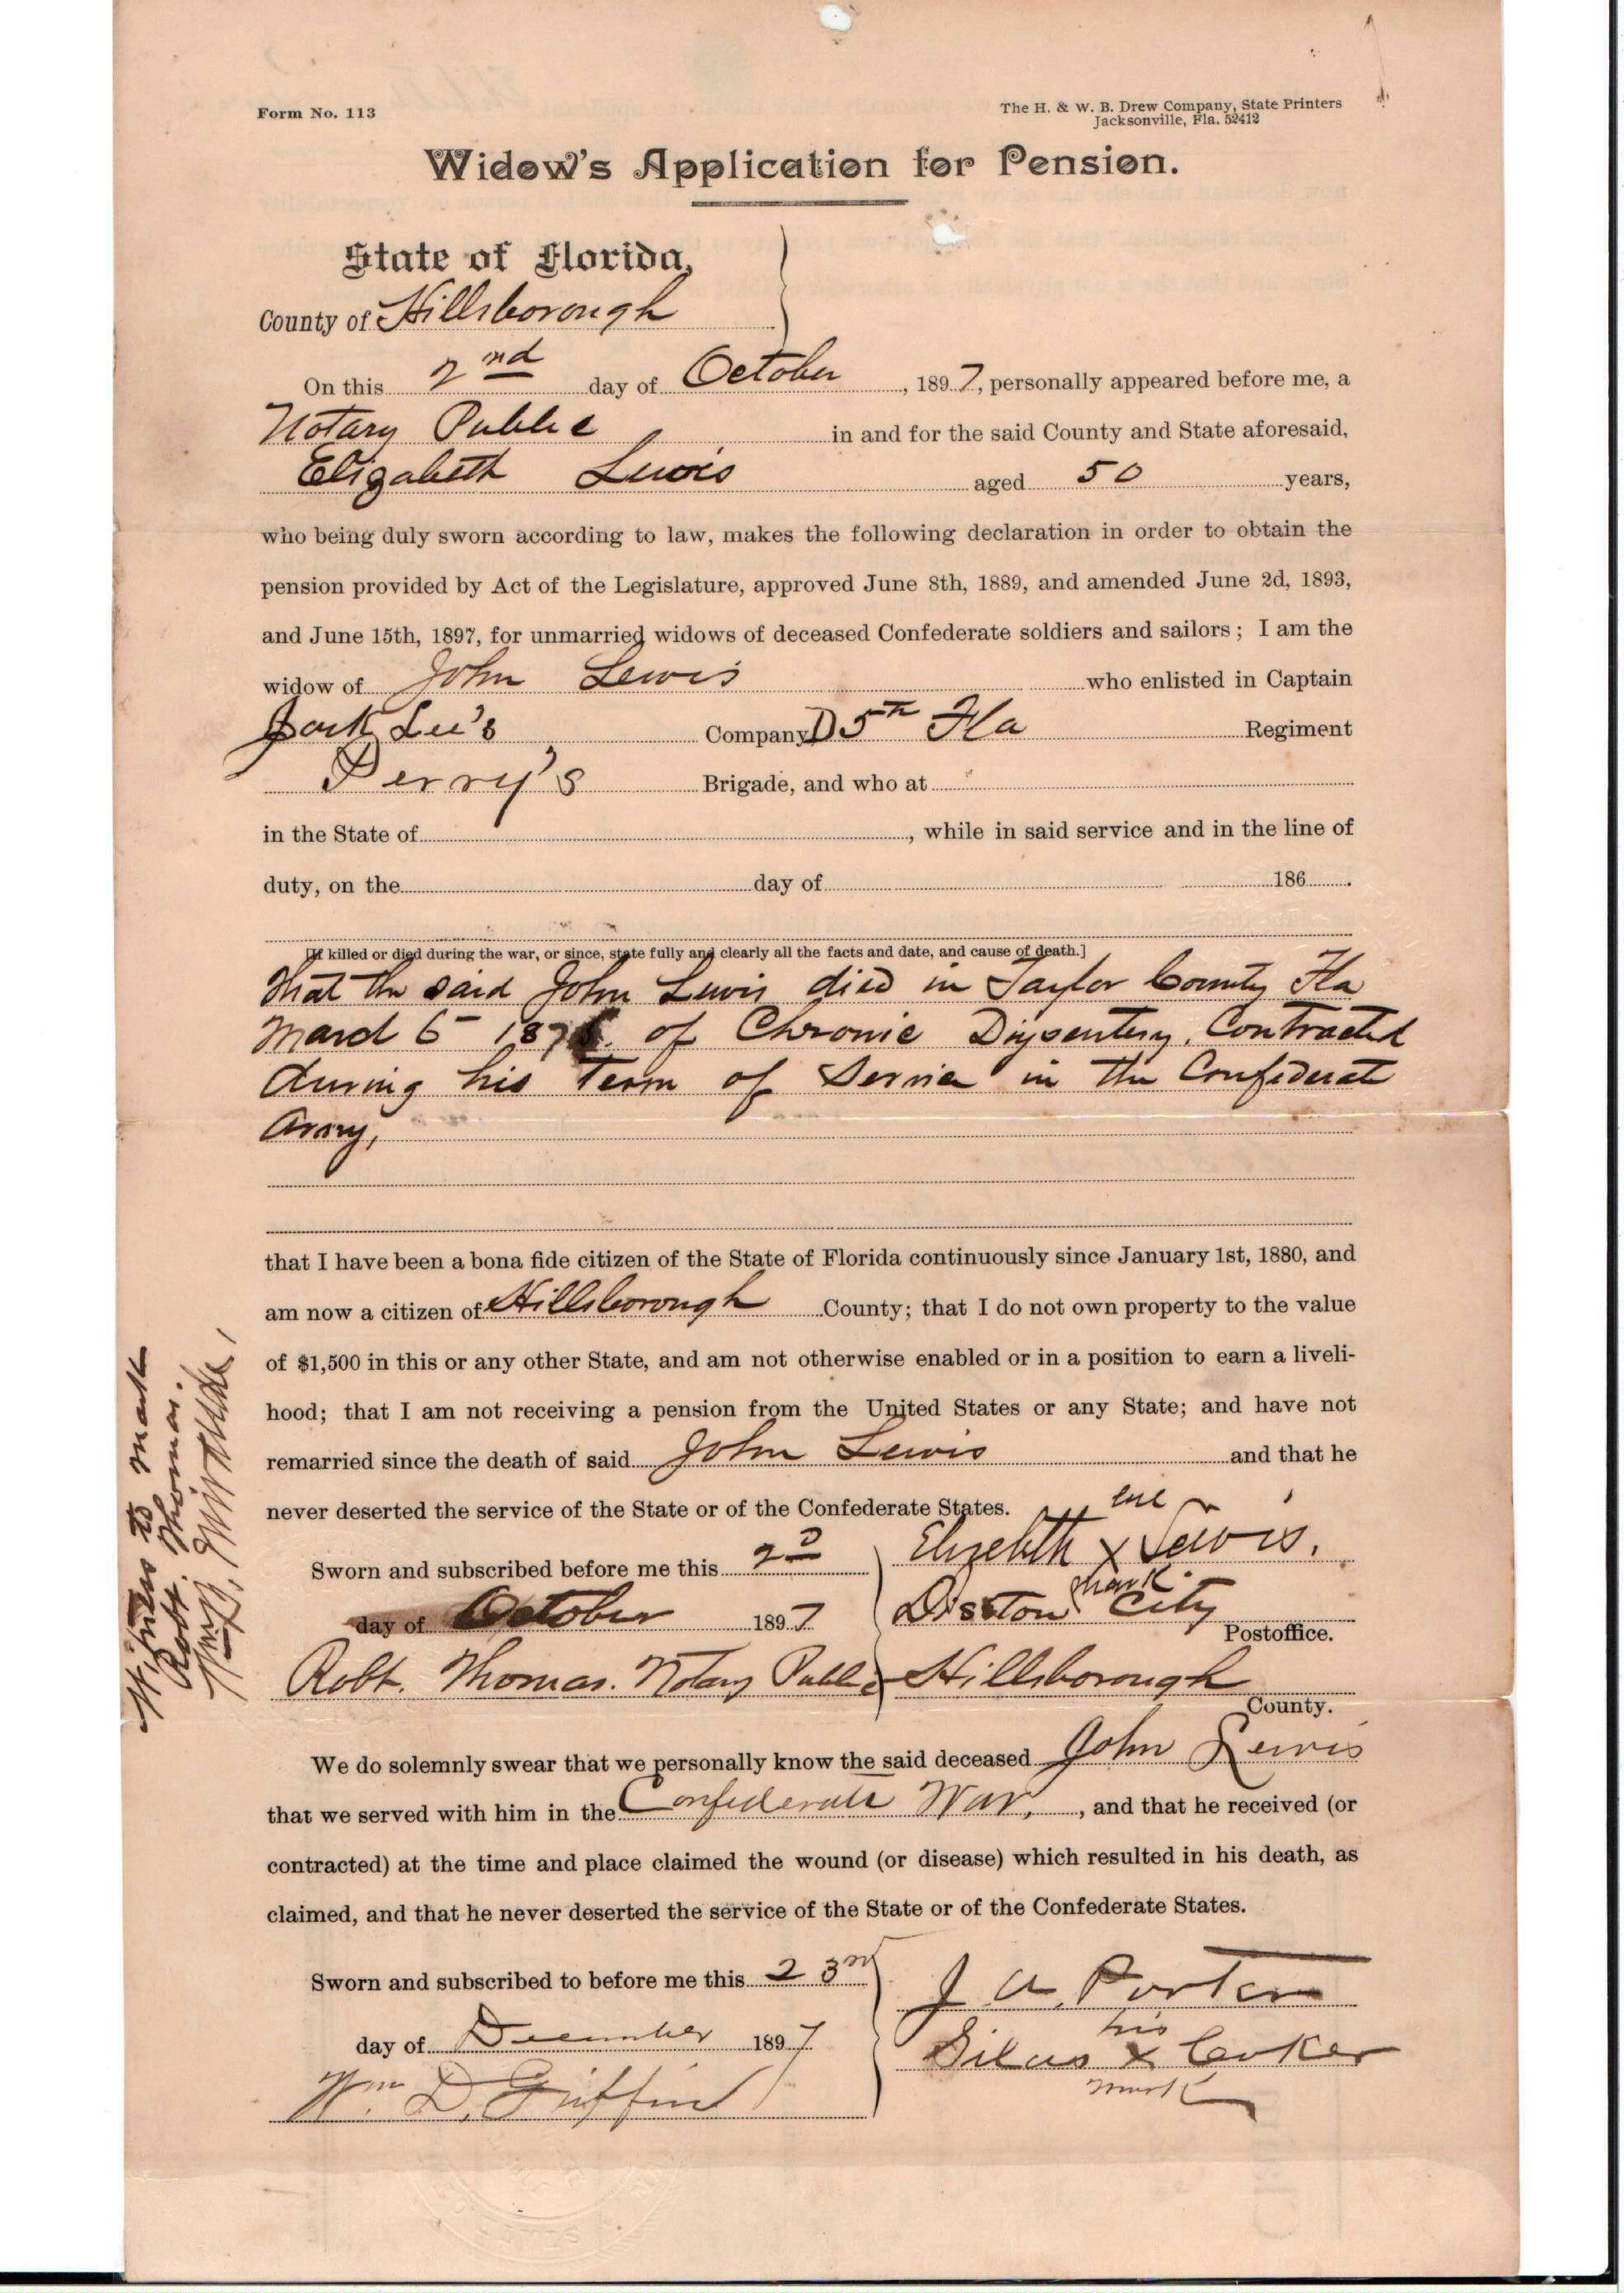 Form No. 113
The H. & W. B. Drew Company, State Printers
Jacksonville, Fla. 52412
Widow's Application for Pension.
State of Florida,
County of Hillsborough
On this 2nd day of October, 1897, personally appeared before me, a
Notary Public in and for the said County and State aforesaid,
Elizabeth Lewis aged 50 years,
who being duly sworn according to law, makes the following declaration in order to obtain the
pension provided by Act of the Legislature, approved June 8th, 1889, and amended June 2d, 1893,
and June 15th, 1897, for unmarried widows of deceased Confederate soldiers and sailors; I am the
widow of John Lewis who enlisted in Captain
Jack Lee's Company D 5th Fla Regiment
Perry's Brigade, and who at
in the State of, while in said service and in the line of
duty, on the day of 186.
[If killed or died during the war, or since, state fully and clearly all the facts and date, and cause of death.]
that the said John Lewis died in Taylor County Fla
March 6 187 of Chronic Dysentery, Contracted
during his Term of Service in the Confederate
Army,
that I have been a bona fide citizen of the State of Florida continuously since January 1st, 1880, and
am now a citizen of Hillsborough County; that I do not own property to the value
of $1,500 in this or any other State, and am not otherwise enabled or in a position to earn a liveli-
hood; that I am not receiving a pension from the United States or any State; and have not
remarried since the death of said John Lewis and that he
never deserted the service of the State or of the Confederate States.
Sworn and subscribed before me this 2D
day of October 1897
Robt. Thomas. Notary Public
Elizebeth x Lewis.
mark
Disston City
Postoffice.
Hillsborough
County.
Witness to mark
Robt. Thomas.
We do solemnly swear that we personally know the said deceased John Lewis
that we served with him in the Confederate War, and that he received (or
contracted) at the time and place claimed the wound (or disease) which resulted in his death, as
claimed, and that he never deserted the service of the State or of the Confederate States.
Sworn and subscribed to before me this 23rd
day of December 1897
Wm D. Griffin
J. A. Porter
his
Silas x Coker
mark